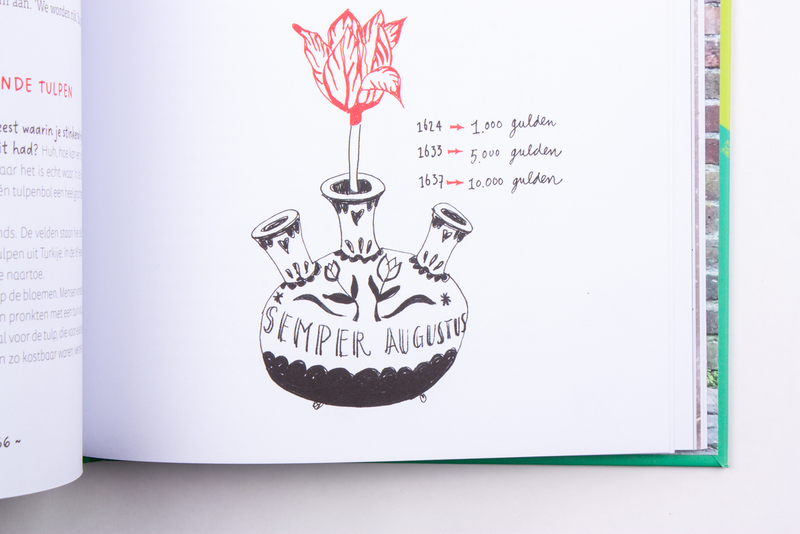 n aan. 'We worden
NDE TULPEN
eest waarin je
it had? Huh, hoe
aar het is echt waar
én tulpenbol een heel
nds. De velden staan
ulpen uit Turkije. In de
e naartoe.
p de bloemen. Mensen
n pronkten met een
al voor de tulp, die
n zo kostbaar waren,
66 ~
1624 → 1.000 gulden
1633 → 5.000 gulden
1637 → 10.000 gulden
SEMPER AUGUSTUS